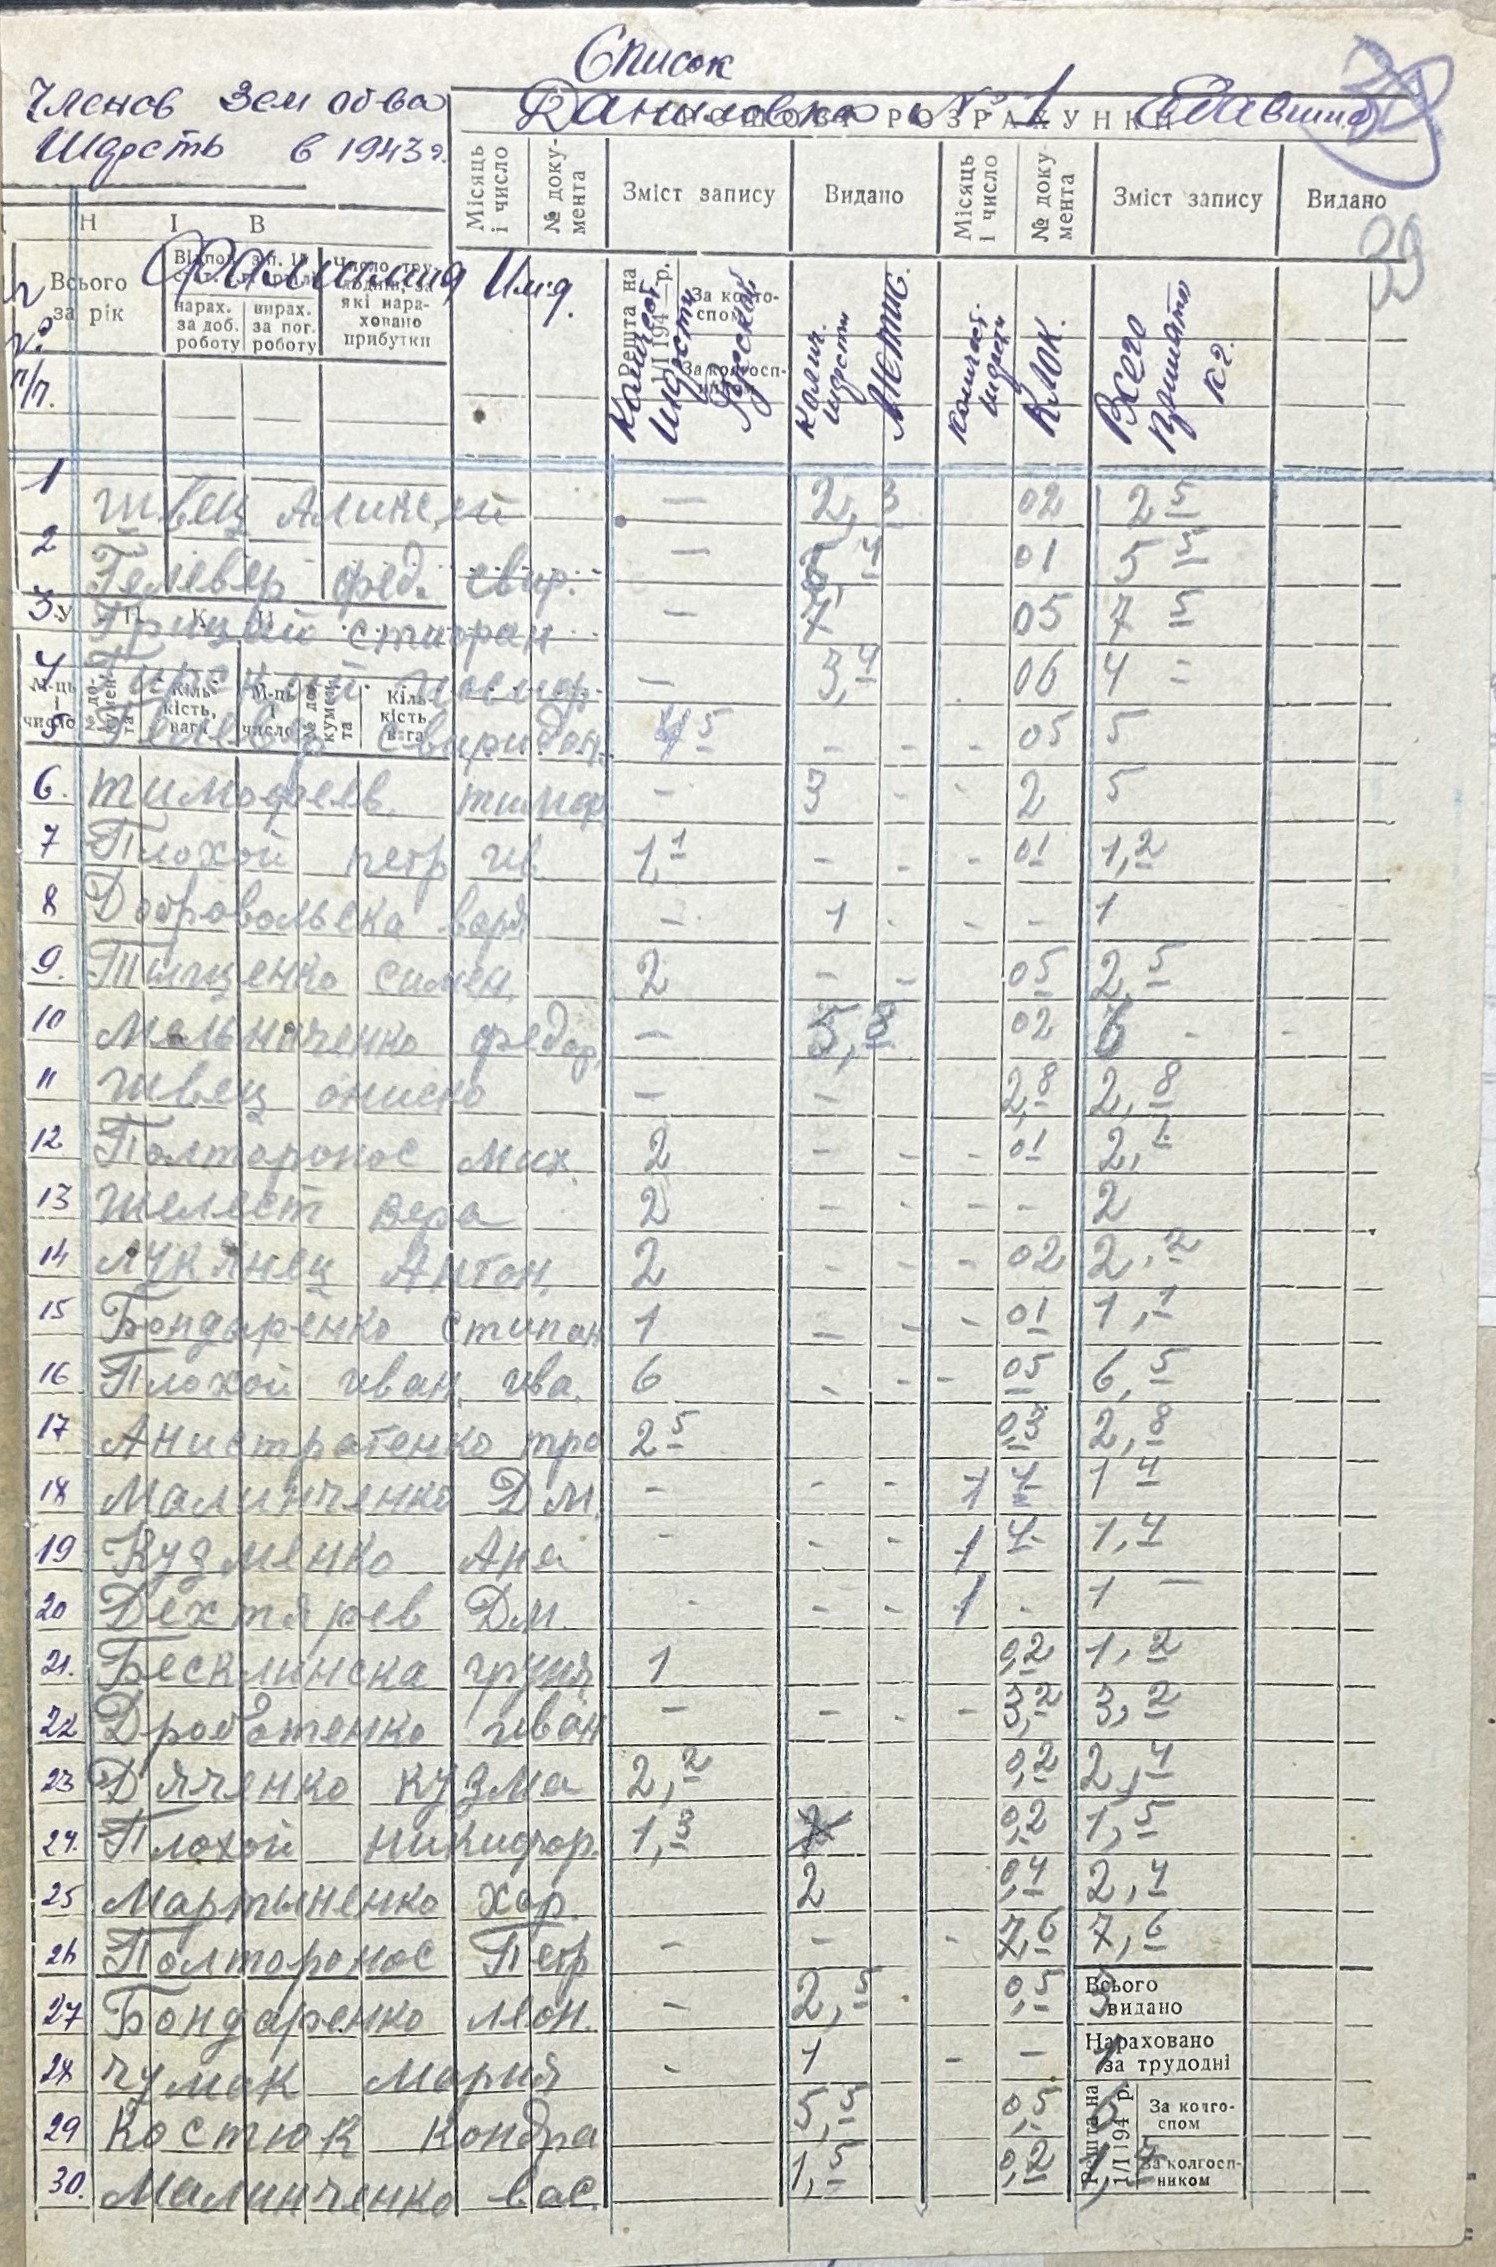 Список
Членов Зем об-ва Даниловка №1 сдавших
Шерсть в 1943 г.
РОЗРАХУНКИ
Місяць і число № доку-мента Зміст запису Видано Місяць і число № доку-мента Зміст запису Видано
39
Н І В
№ п/п. Фамилия Имя
Всього за рік нарах. за доб. роботу вирах. за пог. роботу які нара-ховано прибутки
Решта на 1/I 194 р. За колго-спом За колгосп-ником
Количест шерсти Русской Колич. шерсти Метис. Количест. шерсти Клок. Всего принято кг.
1 Швец Аликсей — 2,3 02 2 5
2 Гелевер фед. свир. — 5,4 01 5 5
3 Грицай стипан — 7 05 7 5
4 — 3,4 06 4 =
М-ць і число № до-кумен-та Кіль-кість, вага М-ць і число № до-кумен-та Кіль-кість вага
5 Гелевер Свиридон. 4 5 - - - 05 5
6. тимофеев. тимоф - 3 - - 2 5
7 Плохой петр ив 1,1 - - - 01 1,2
8 Добровольска варя - 1 - - - 1
9. Тищенко симен. 2 - - 05 2,5
10 Мельниченко федор, - 5,8 02 6 -
11 Швец ониско - - 2,8 2,8
12 Полторонос мих. 2 - - - 01 2,1
13 Шелест вера 2 - - - - 2
14 Лукянец Антон, 2 - - - 02 2,2
15 Бондаренко стипан 1 - - - 01 1,1
16 Плохой иван. ива. 6 - - - 05 6,5
17 Анистратенко тро 2 5 0,3 2,8
18 Малинченко Дм. - - - 1 4 1 4
19 Кузменко Ана - - - 1 4 1,4
20 Дехтярев Дм. - - - 1 - 1 —
21. Бесклинска груня 1 0,2 1,2
22 Дроботенко иван - - - - 3,2 3,2
23 Дяченко кузма 2,2 0,2 2,4
24. Плохой никифор. 1,3 0,2 1,5
25 Мартыненко хар. 2 0,4 2,4
26 Полторонос Петр - - - 7,6 7,6
27 Бондаренко леон. - 2,5 . 0,5 3
Всього видано
28 чумак Мария - 1 - - 1
Нараховано за трудодні
29 Костюк кондра 5,5 0,5 6
Решта на 1/I 194 р. За колго-спом
30. Малинченко вас. 1,5 0,2 1,7
За колгосп-ником